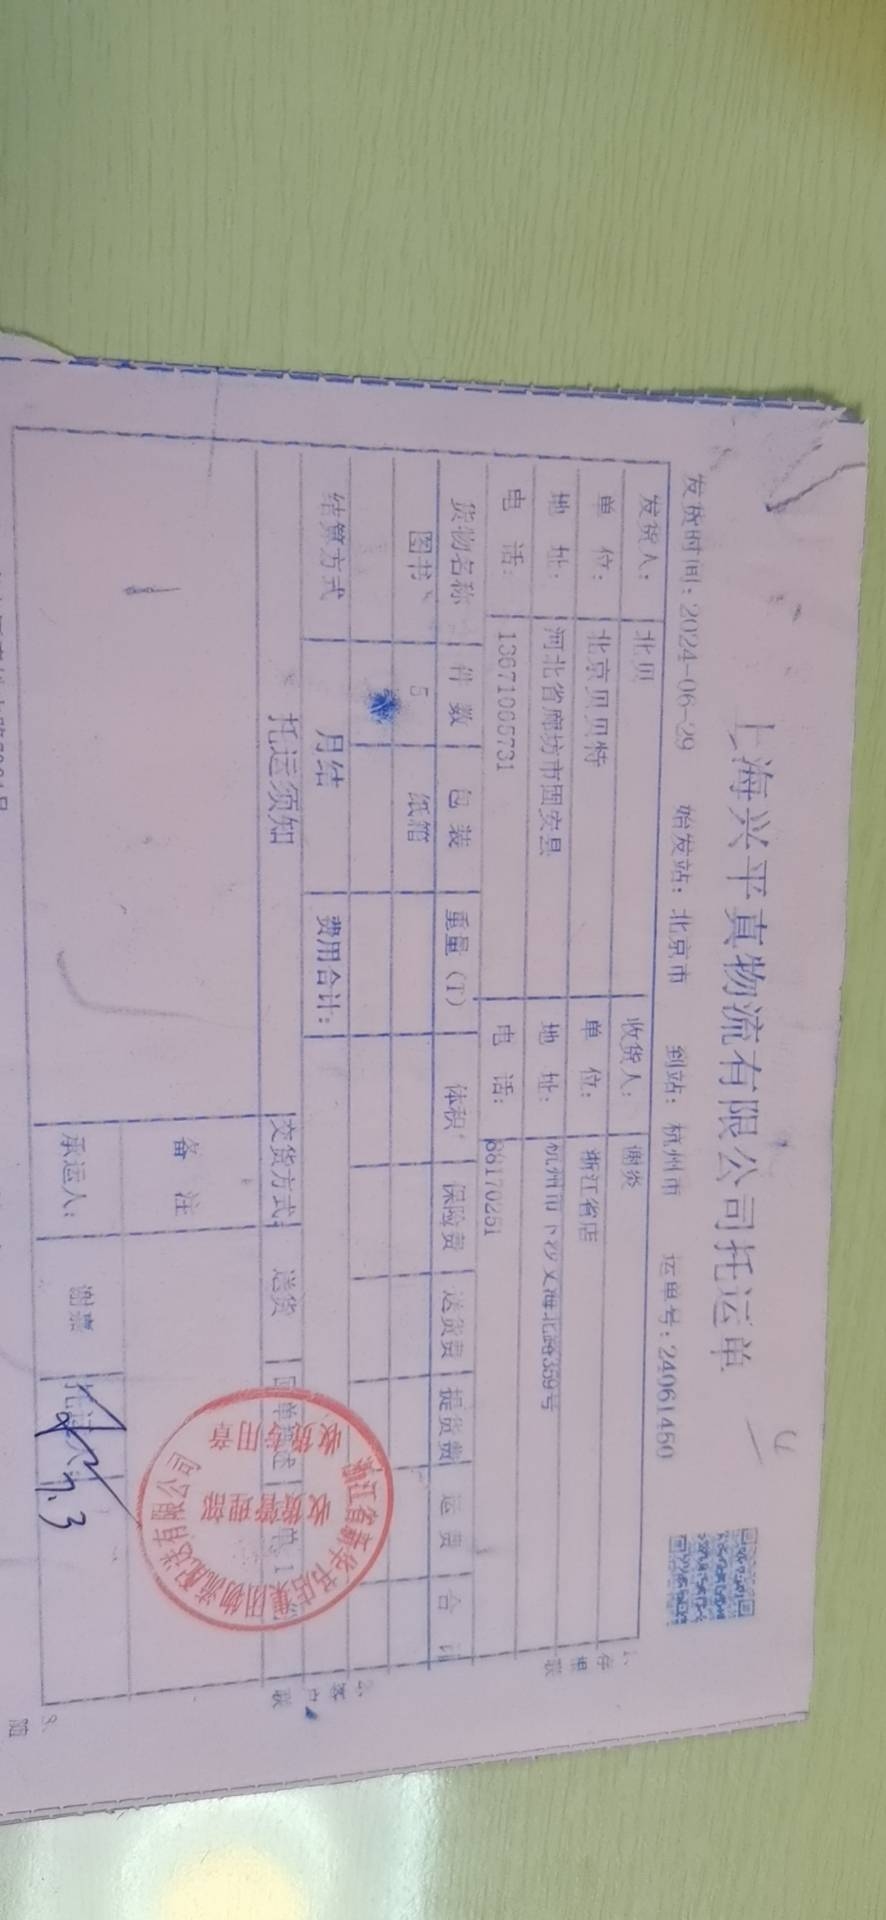 上海兴平真物流有限公司托运单
发货时间：2024-06-29 始发站：北京市 到站：杭州市 运单号：24061450
发货人： 北贝 收货人： 谢炎
单 位： 北京贝贝特 单 位： 浙江省店
地 址： 河北省廊坊市固安县 地 址： 杭州市下沙文海北路369号
电 话： 13671065731 电 话： 86170251
货物名称 件 数 包 装 重量（T） 体积 保险费 送货费 提货费 运 费 合 计
图书 5 纸箱
结算方式 月结 费用合计：
托运须知 交货方式： 送货
备 注
承运人： 谢熹 托运人
7.3
浙江省新华书店集团物流配送有限公司
收货管理部
收货专用章
1、存根联
2、客户联